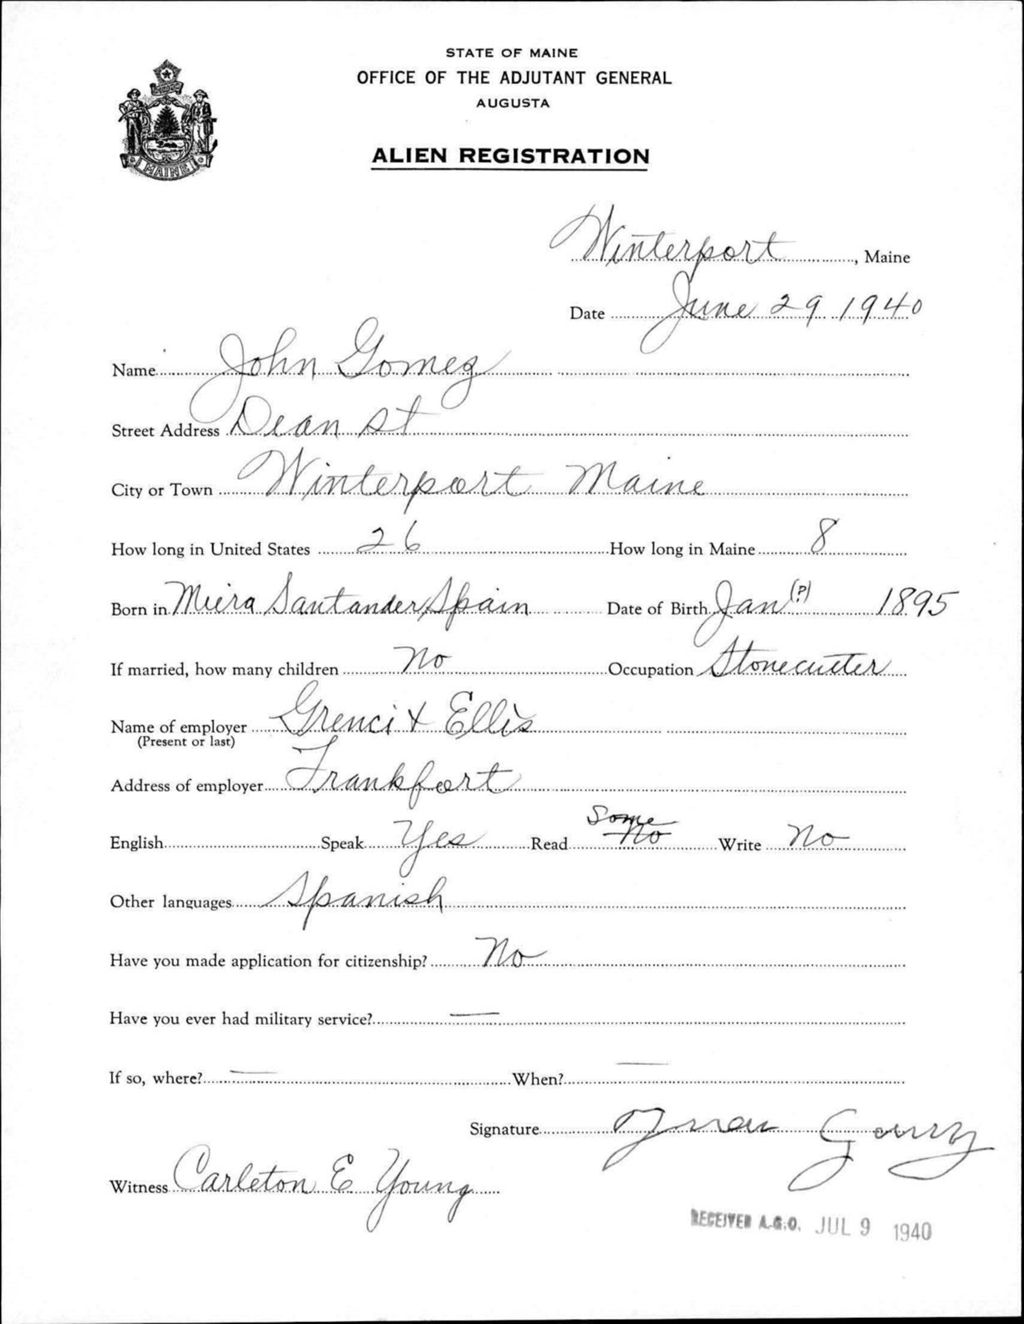 STATE OF MAINE
OFFICE OF THE ADJUTANT GENERAL
AUGUSTA
MAINE
ALIEN REGISTRATION
Winterport, Maine
Date June 29 1940
Name John Gomez
Street Address Dean St
City or Town Winterport Maine
How long in United States 26 How long in Maine 8
Born in Miera Santander, Spain Date of Birth Jan (?) 1895
If married, how many children No Occupation Stonecutter
Name of employer Grenci & Ellis
(Present or last)
Address of employer Frankfort
English Speak Yes Read Some No Write No
Other languages Spanish
Have you made application for citizenship? No
Have you ever had military service? —
If so, where? — When? —
Signature Juan Gomez
Witness Carleton E Young
RECEIVED A.G.O. JUL 9 1940